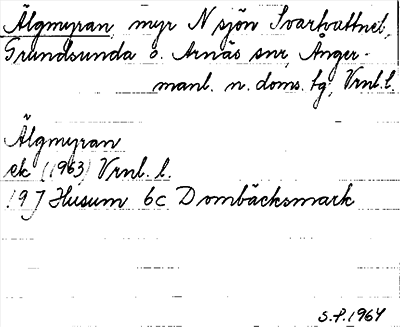 Älgmyran, myr N sjön Svartvattnet,
Grundsunda o. Arnäs snr, Ånger-
manl. n. doms. fg, Vrnl. l.
Älgmyran
ek (1963) Vrnl. l.
19 J Husum 6c Dombäcksmark
S.F. 1964